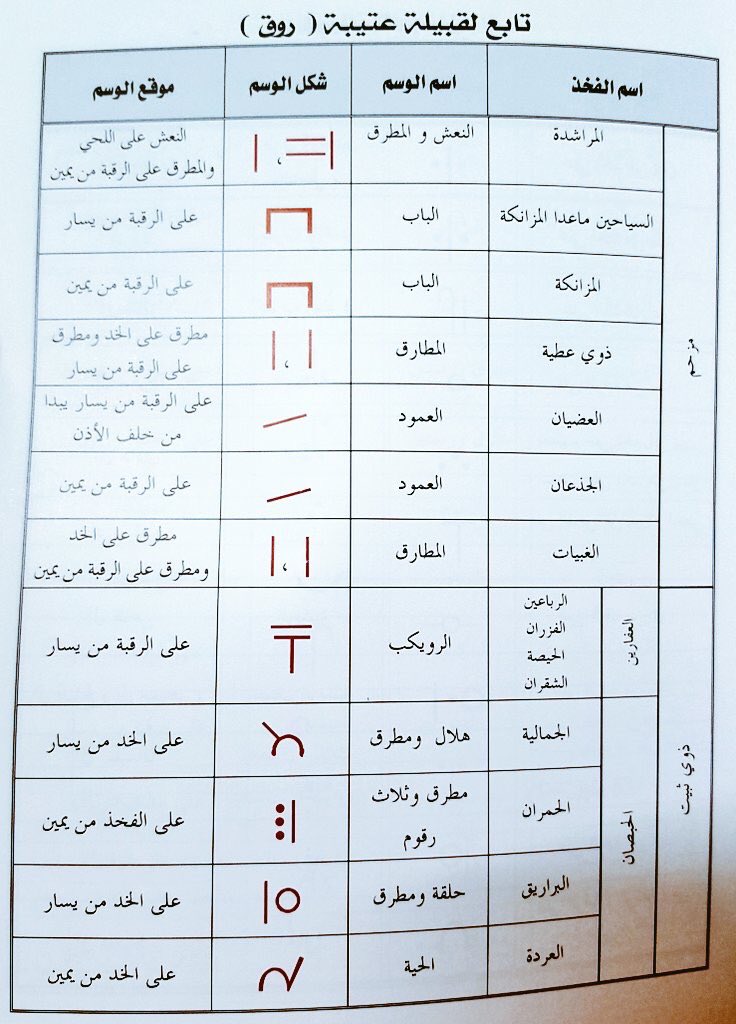 تابع لقبيلة عتيبة ( روق )
اسم الفخذ
اسم الوسم
شكل الوسم
موقع الوسم
مزحم
المراشدة
النعش و المطرق
،
النعش على اللحي
والمطرق على الرقبة من يمين
السياحين ماعدا المزانكة
الباب
على الرقبة من يسار
المزانكة
الباب
على الرقبة من يمين
ذوي عطية
المطارق
،
مطرق على الخد ومطرق
على الرقبة من يسار
العضيان
العمود
على الرقبة من يسار يبدا
من خلف الأذن
الجذعان
العمود
على الرقبة من يمين
الغبيات
المطارق
،
مطرق على الخد
ومطرق على الرقبة من يمين
ذوي ثبيت
العفارين
الرباعين
الفزران
الحيصة
الشقران
الرويكب
على الرقبة من يسار
الحبصان
الجمالية
هلال ومطرق
على الخد من يسار
الحمران
مطرق وثلاث
رقوم
على الفخذ من يمين
البراريق
حلقة ومطرق
على الخد من يسار
العردة
الحية
على الخد من يمين